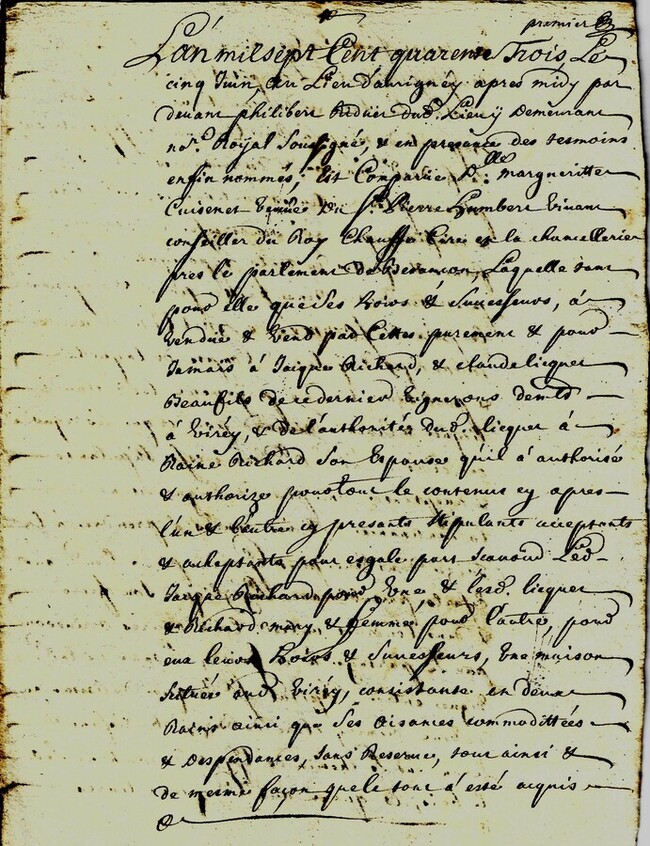 premier
L'an mil sept Cent quarente Trois Le
cinq Juin, au Lieu d'avrigney apres midy par
devant philibert dud. Lieu y Demeurant
no.re Royal Soussigné, & en presence des tesmoins
enfin nommés, est Comparüe D.lle margueritte
Cuisenet vefve du S.r Pierre humbert vivant
conseiller du Roy Chauffe Cire en la chancellerie
pres le parlement de Besancon, Laquelle tant
pour elle que Ses hoirs & Successeurs, à
vendue & vend par Cettes purement & pour
Jamais à Jacque Richard, & claude licquet
Beaufils de ce dernier vignerons dem.ts
à virey, & de l'authorités dud. licquet à
Raine Richard Son Espouse qu'il à authorisé
& authorize pour tout le contenus cy apres
l'un & l'autre cy presants stipulants acceptants
& acheptants pour esgale part scavoir Led.
Jacque Richard pour une & lesd. licquet
& Richard mary & femme pour l'autre, pour
eux leurs hoirs & successeurs, une maison
scitüée aud. virey, consistante en deux
Rains ainsi que ses aisances commodittées
& despendances, sans Reserve, tout ainsi &
de mesme façon que le tout à esté acquis